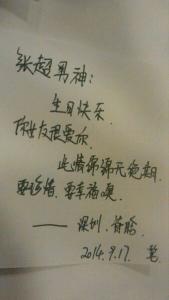 张超男神：
生日快乐
你女友很爱你
此情绵绵无绝期
要珍惜，要幸福噢
——深圳.蒋
2014.9.17. 笔